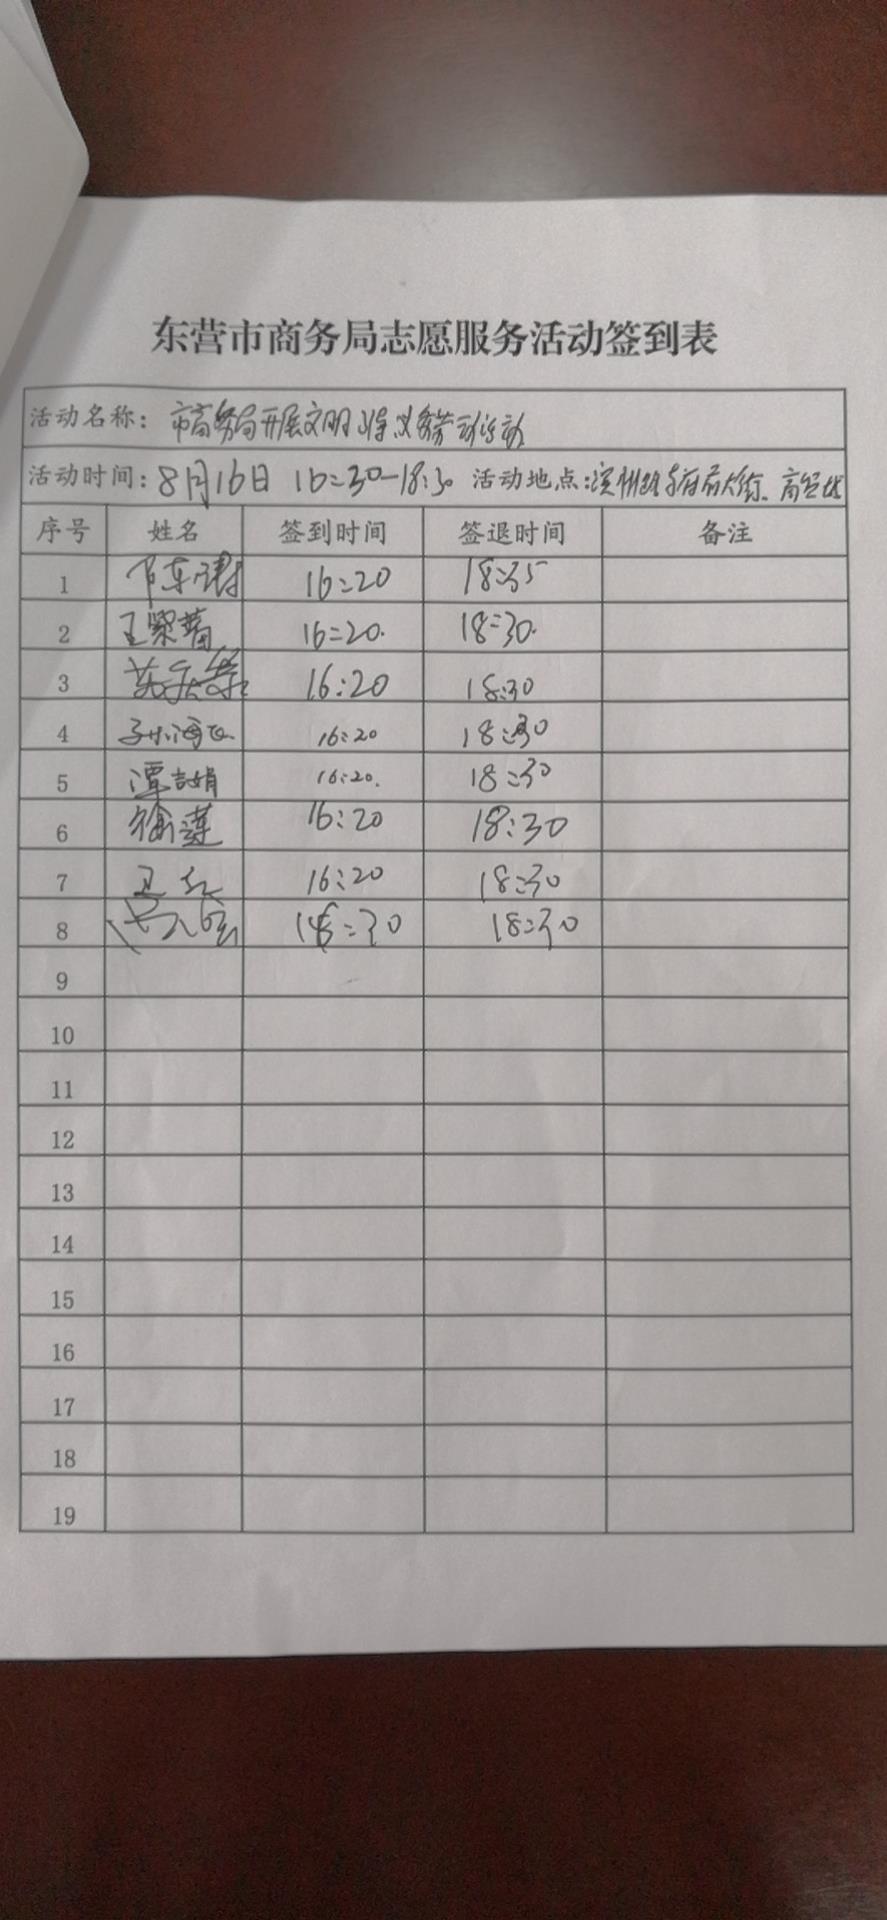 东营市商务局志愿服务活动签到表
活动名称: 市商务局开展文明 义务劳动活动
活动时间: 8月16日 16:30-18:30 活动地点: 府前大街、
序号 姓名 签到时间 签退时间 备注
1 16:20 18:35
2 王翠萍 16:20. 18:30.
3 16:20 18:30
4 孙海 16:20 18:30
5 谭 娟 16:20. 18:30
6 徐莲 16:20 18:30
7 16:20 18:30
8 :30 18:30
9
10
11
12
13
14
15
16
17
18
19